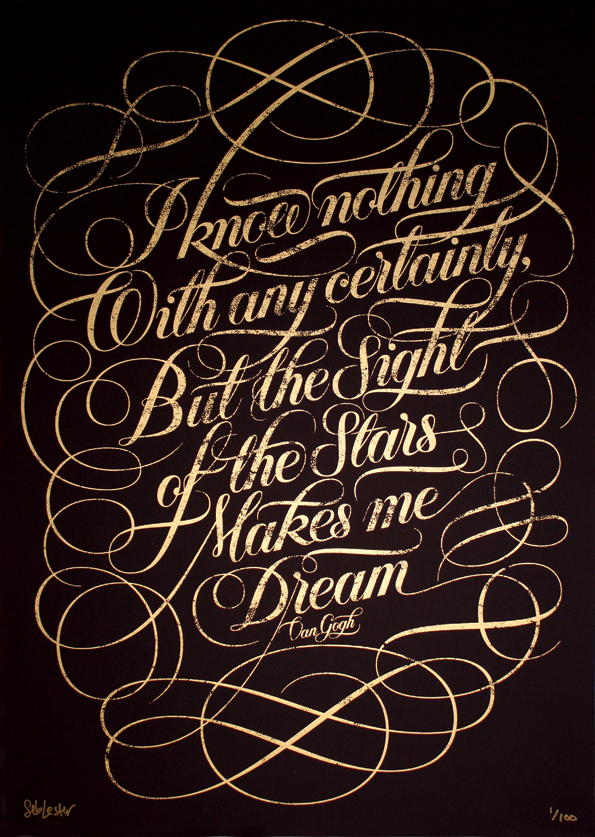 I know nothing
With any certainty,
But the Sight
of the Stars
Makes me
Dream
Van Gogh
Seb Lester
1/100